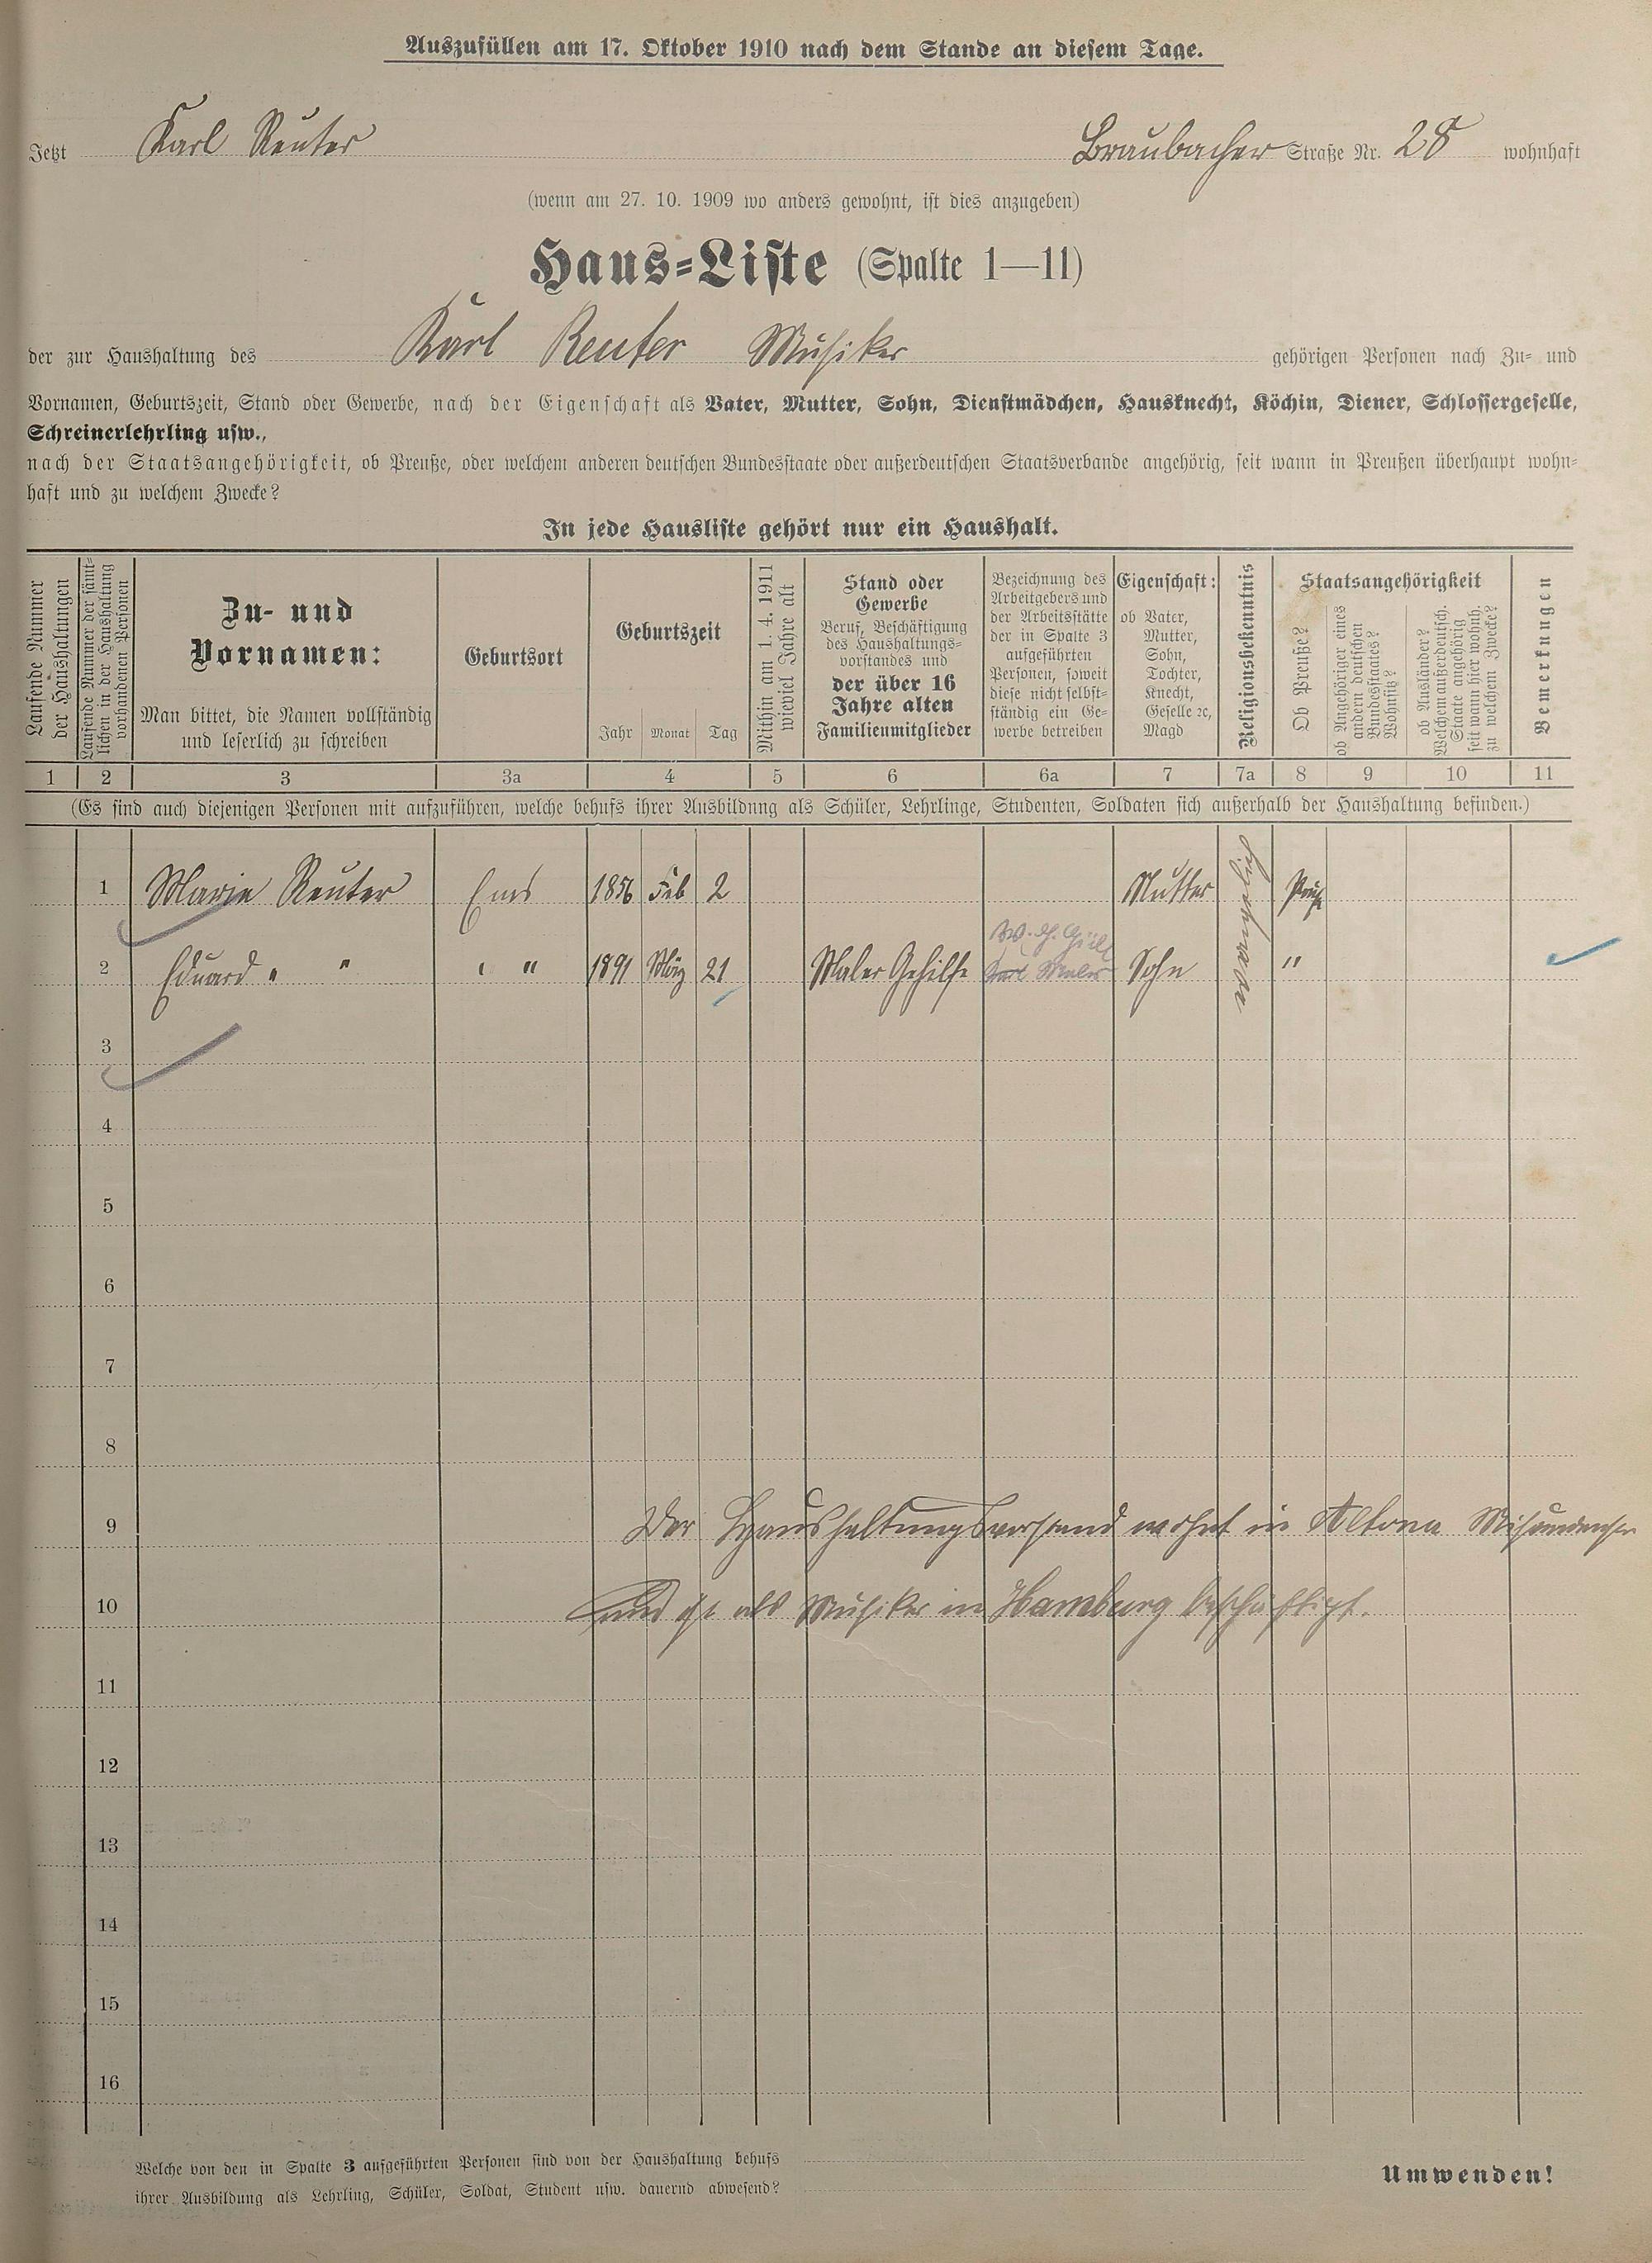 Auszufüllen am 17. Oktober 1910 nach dem Stande an diesem Tage.
Jetzt Karl Reuter Braubacher Straße Nr. 28 wohnhaft
(wenn am 27. 10. 1909 wo anders gewohnt, ist dies anzugeben)
Haus-Liste (Spalte 1—11)
der zur Haushaltung des Karl Reuter Musiker gehörigen Personen nach Zu- und
Vornamen, Geburtszeit, Stand oder Gewerbe, nach der Eigenschaft als Vater, Mutter, Sohn, Dienstmädchen, Hausknecht, Köchin, Diener, Schlossergeselle,
Schreinerlehrling usw.,
nach der Staatsangehörigkeit, ob Preuße, oder welchem anderen deutschen Bundesstaate oder außerdeutschen Staatsverbande angehörig, seit wann in Preußen überhaupt wohn-
haft und zu welchem Zwecke?
In jede Hausliste gehört nur ein Haushalt.
Laufende Nummer
der Haushaltungen
Laufende Nummer der sämt-
lichen in der Haushaltung
vorhandenen Personen
Zu- und
Vornamen:
Man bittet, die Namen vollständig
und leserlich zu schreiben
Geburtsort
Geburtszeit
Jahr Monat Tag
Mithin am 1. 4. 1911
wieviel Jahre alt
Stand oder
Gewerbe
Beruf, Beschäftigung
des Haushaltungs-
vorstandes und
der über 16
Jahre alten
Familienmitglieder
Bezeichnung des
Arbeitgebers und
der Arbeitsstätte
der in Spalte 3
aufgeführten
Personen, soweit
diese nicht selbst-
ständig ein Ge-
werbe betreiben
Eigenschaft:
ob Vater,
Mutter,
Sohn,
Tochter,
Knecht,
Geselle ꝛc,
Magd
Religionsbekenntnis
Staatsangehörigkeit
Ob Preuße?
ob Angehöriger eines
andern deutschen
Bundesstaates?
Wohnsitz?
ob Ausländer?
Welchem außerdeutsch.
Staate angehörig
seit wann hier wohnh.
zu welchem Zwecke?
Bemerkungen
1 2 3 3a 4 5 6 6a 7 7a 8 9 10 11
(Es sind auch diejenigen Personen mit aufzuführen, welche behufs ihrer Ausbildung als Schüler, Lehrlinge, Studenten, Soldaten sich außerhalb der Haushaltung befinden.)
1 Marie Reuter Ems 1856 Feb 2 Mutter evangelisch Preuße
2 Eduard " " " " 1891 März 21 Maler Gehilfe Sohn "
3
4
5
6
7
8
9 Der Haushaltungsvorstand wohnt in Altona
10 und ist als Musiker in Hamburg beschäftigt.
11
12
13
14
15
16
Welche von den in Spalte 3 aufgeführten Personen sind von der Haushaltung behufs
ihrer Ausbildung als Lehrling, Schüler, Soldat, Student usw. dauernd abwesend?
Umwenden!